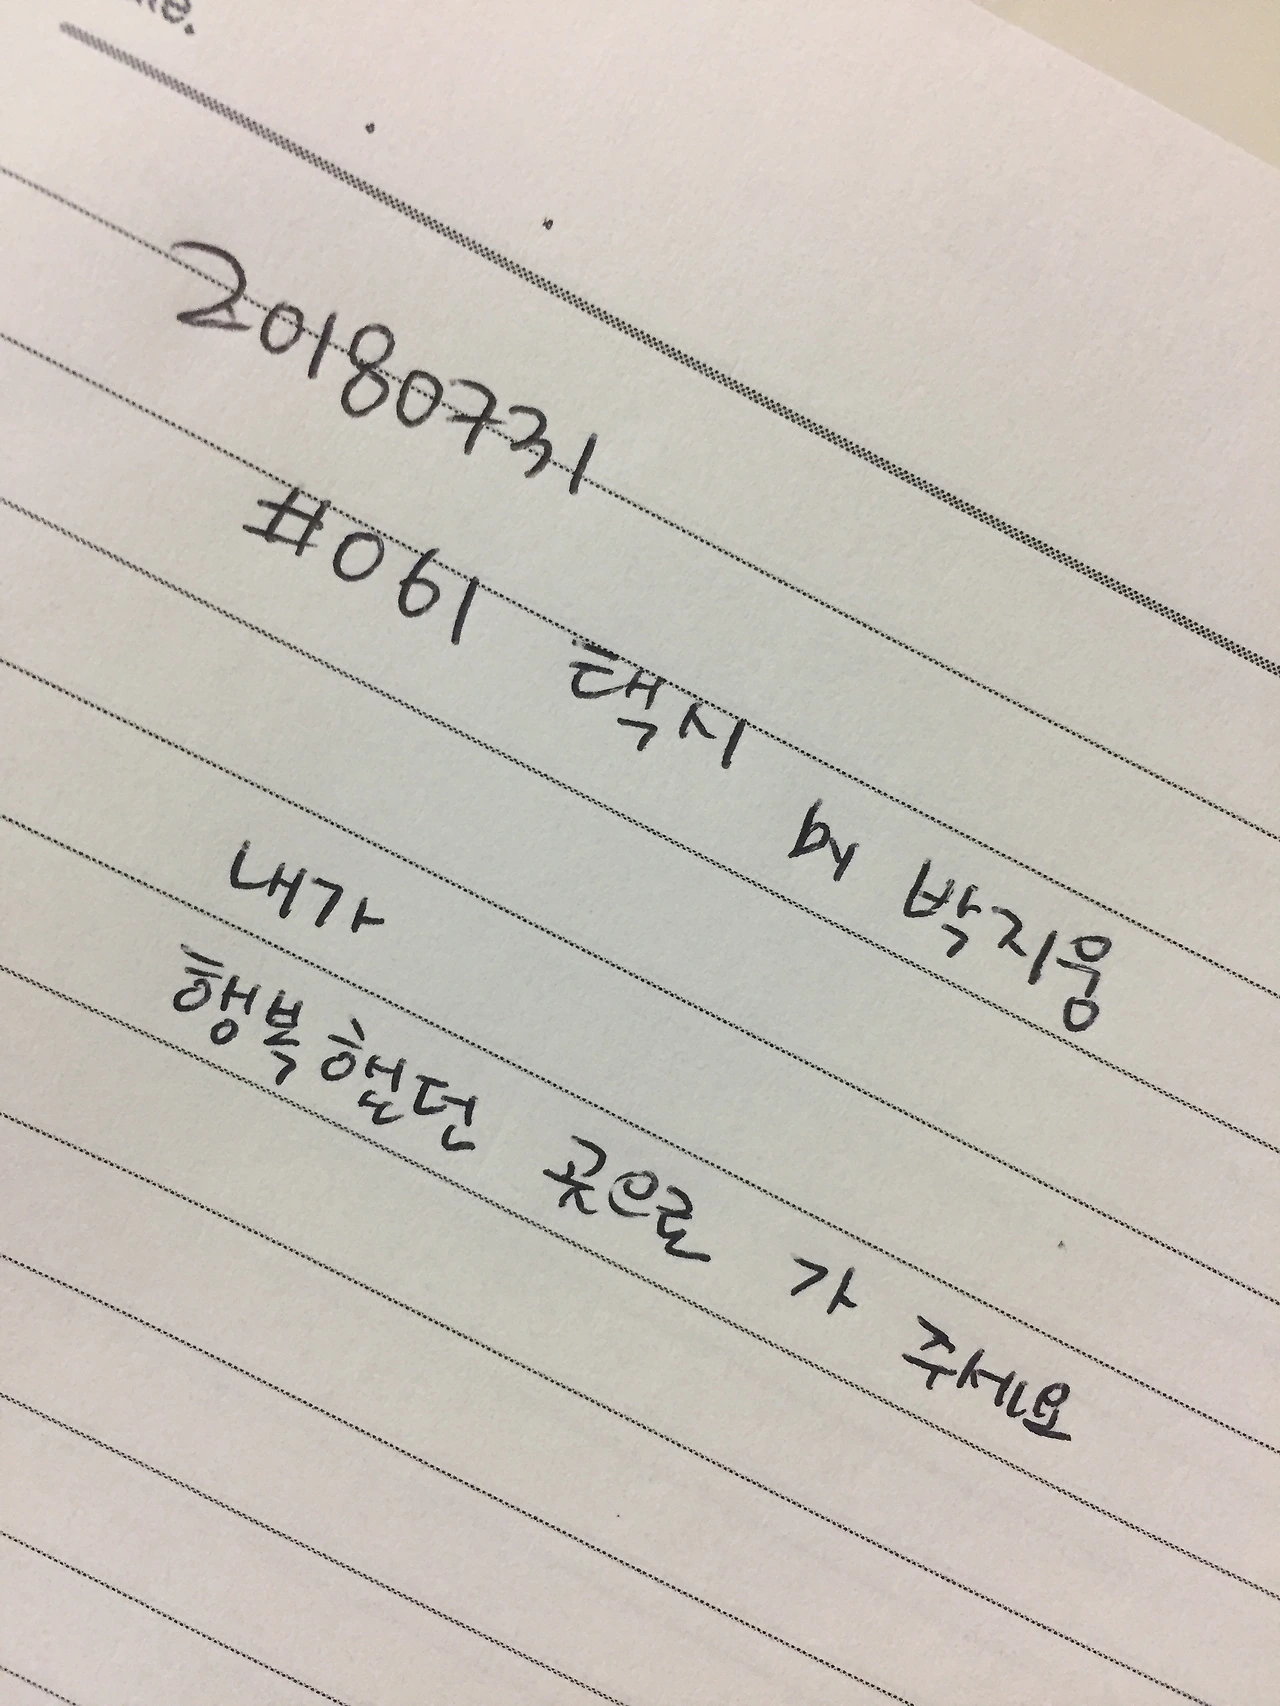 20180731
#061 택시 by 박지웅
내가
행복했던 곳으로 가 주세요